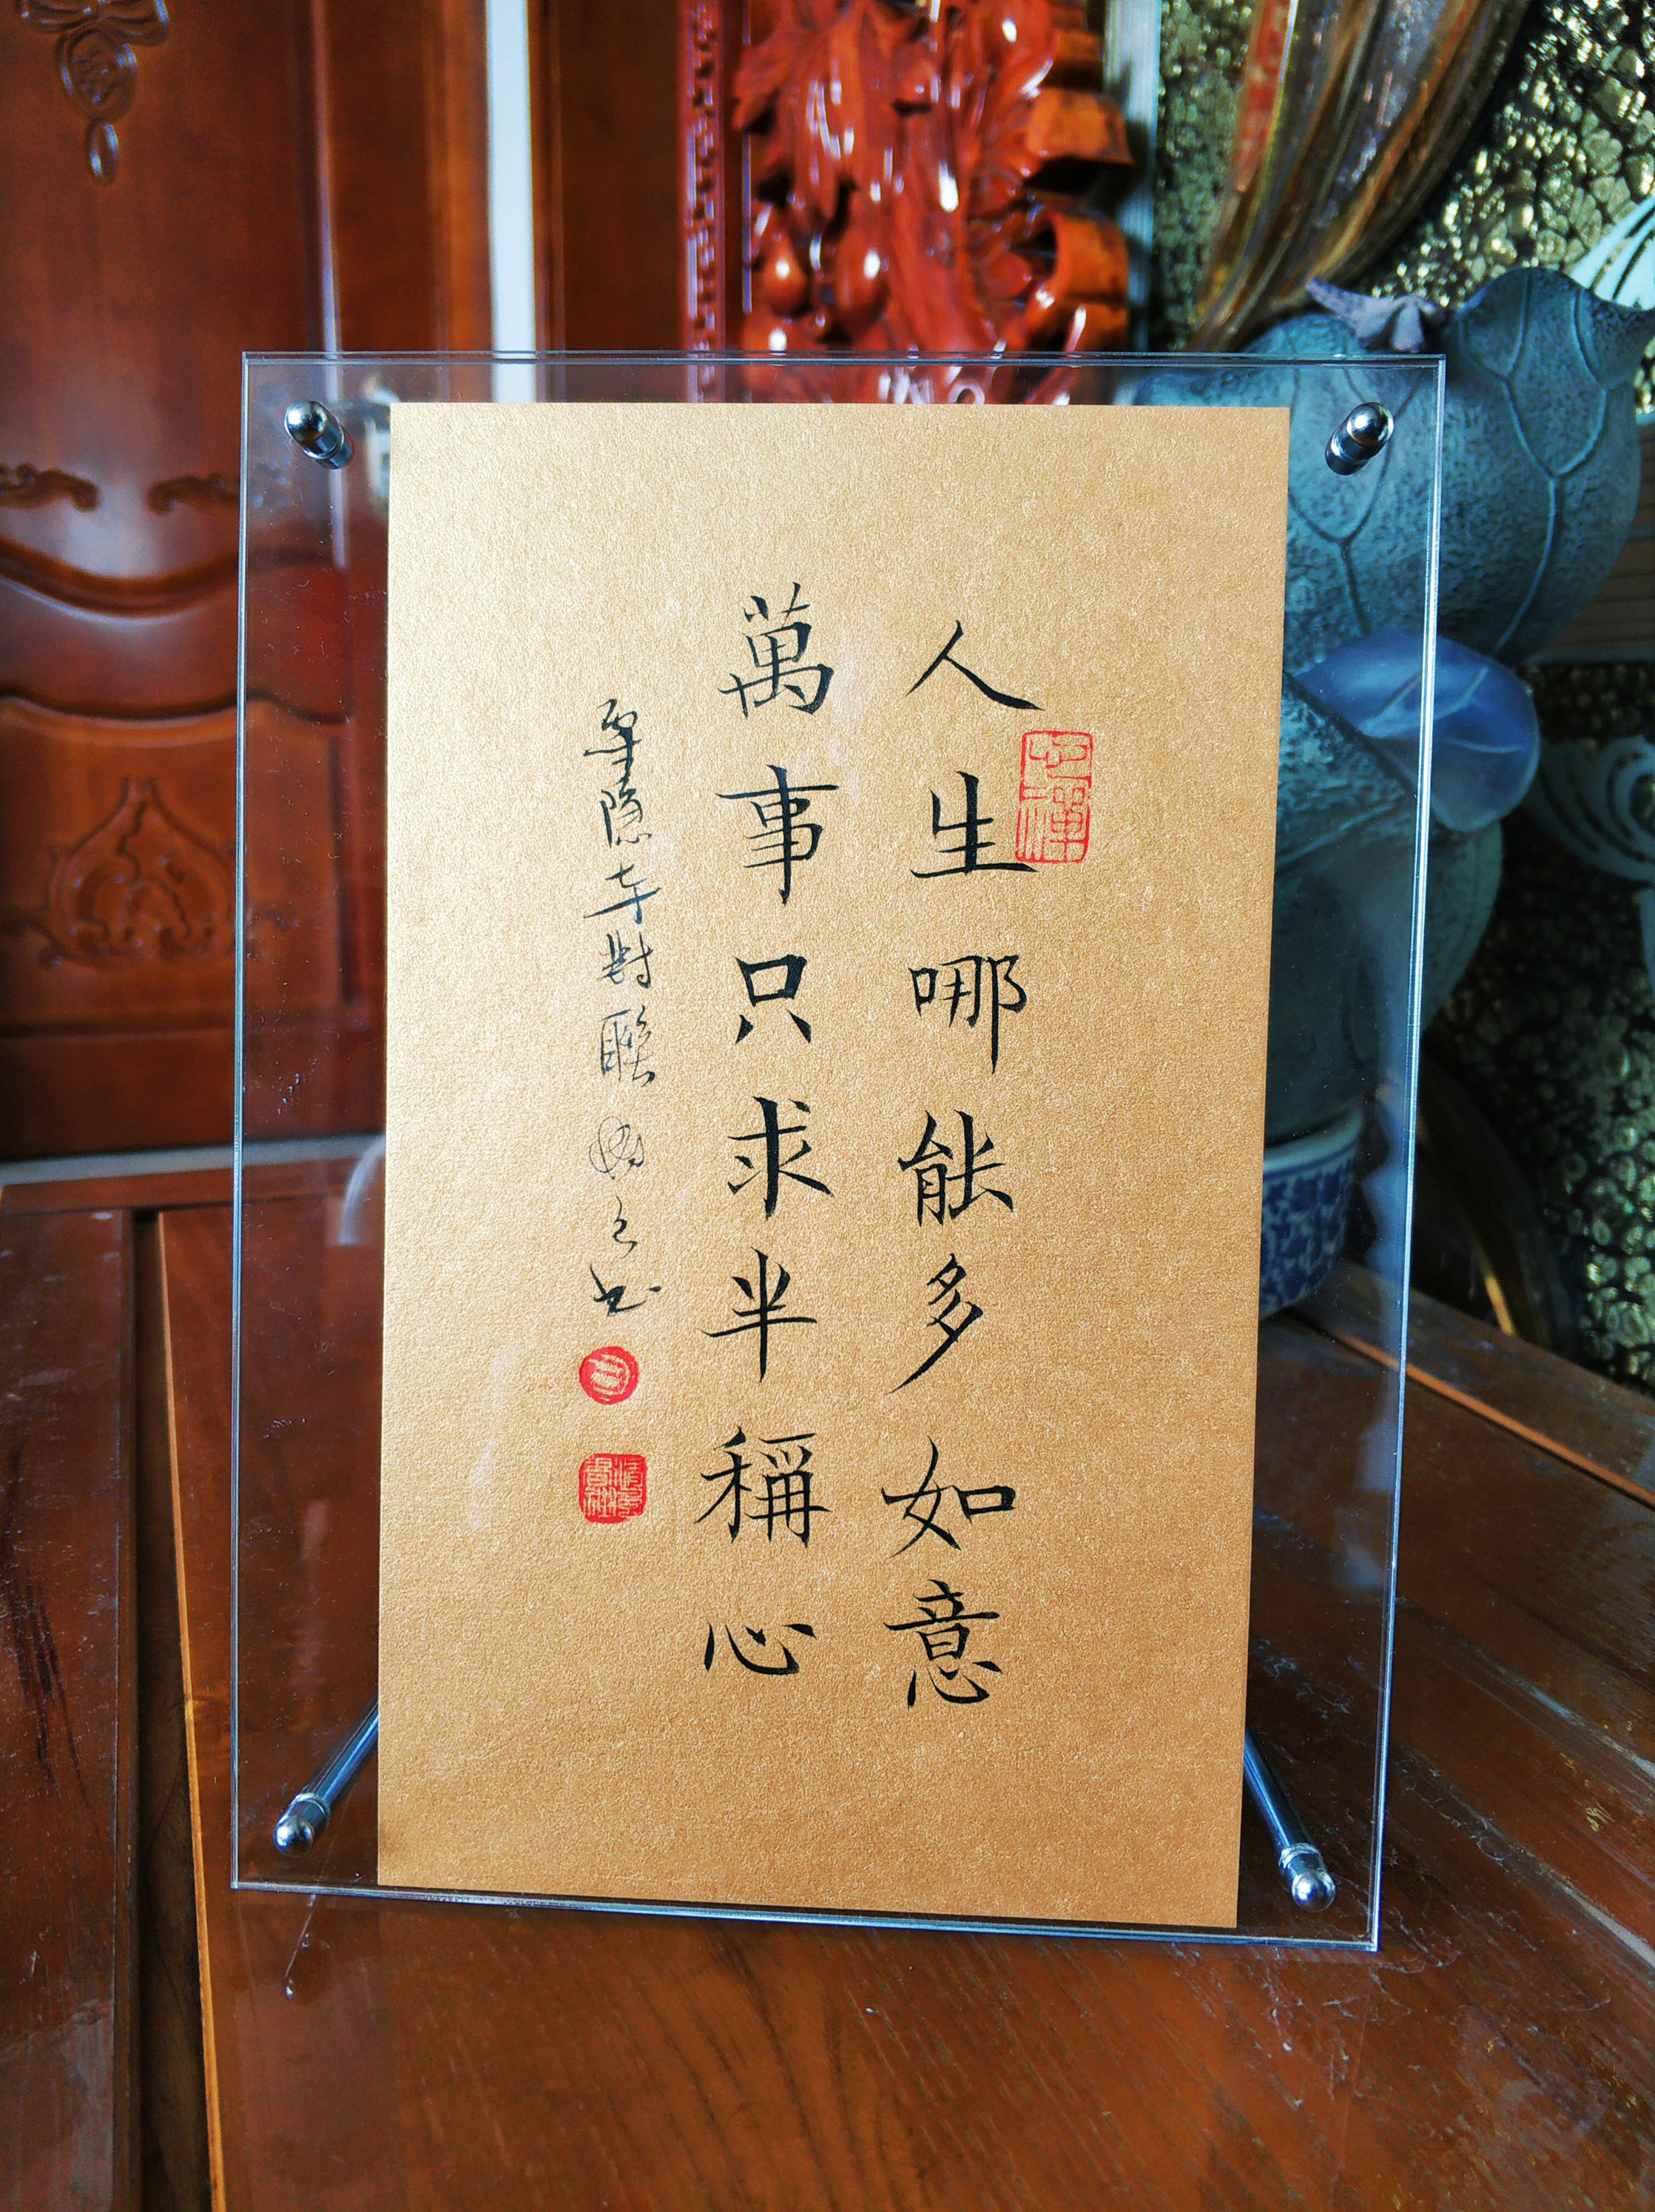 人生哪能多如意
萬事只求半稱心
靈隐寺對聯
書